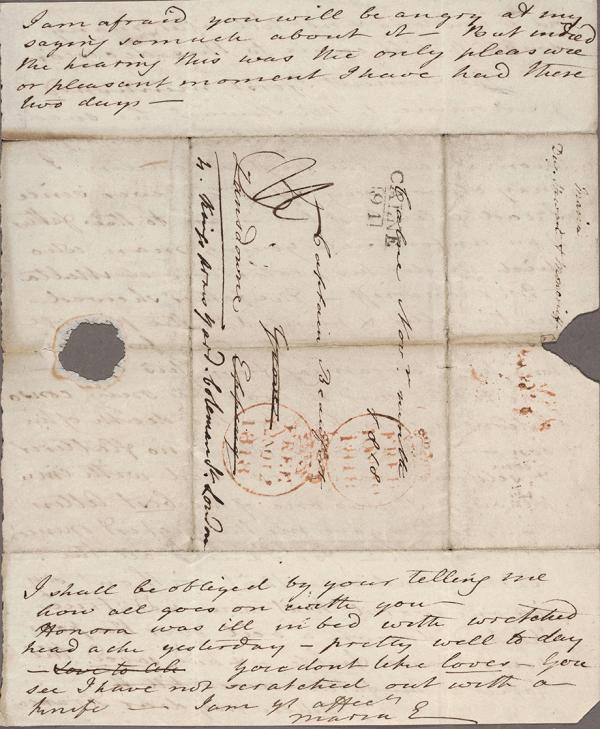 I am afraid you will be angry at my
saying so much about it — But indeed
the hearing this was the only pleasure
or pleasant moment I have had these
two days —
Calne Nov.r ninth
1818
CALNE
Captain Beaufort
Epping
Lansdowne
4. Kings Arms Yard. Coleman St. London
FREE
1818
FREE
1818
Maria
I shall be obliged by your telling me
how all goes on with you —
Honora was ill in bed with wretched
head ache yesterday — pretty well to day
— Love to all you dont like loves — You
see I have not scratched out with a
knife — I am yr affec
Maria E